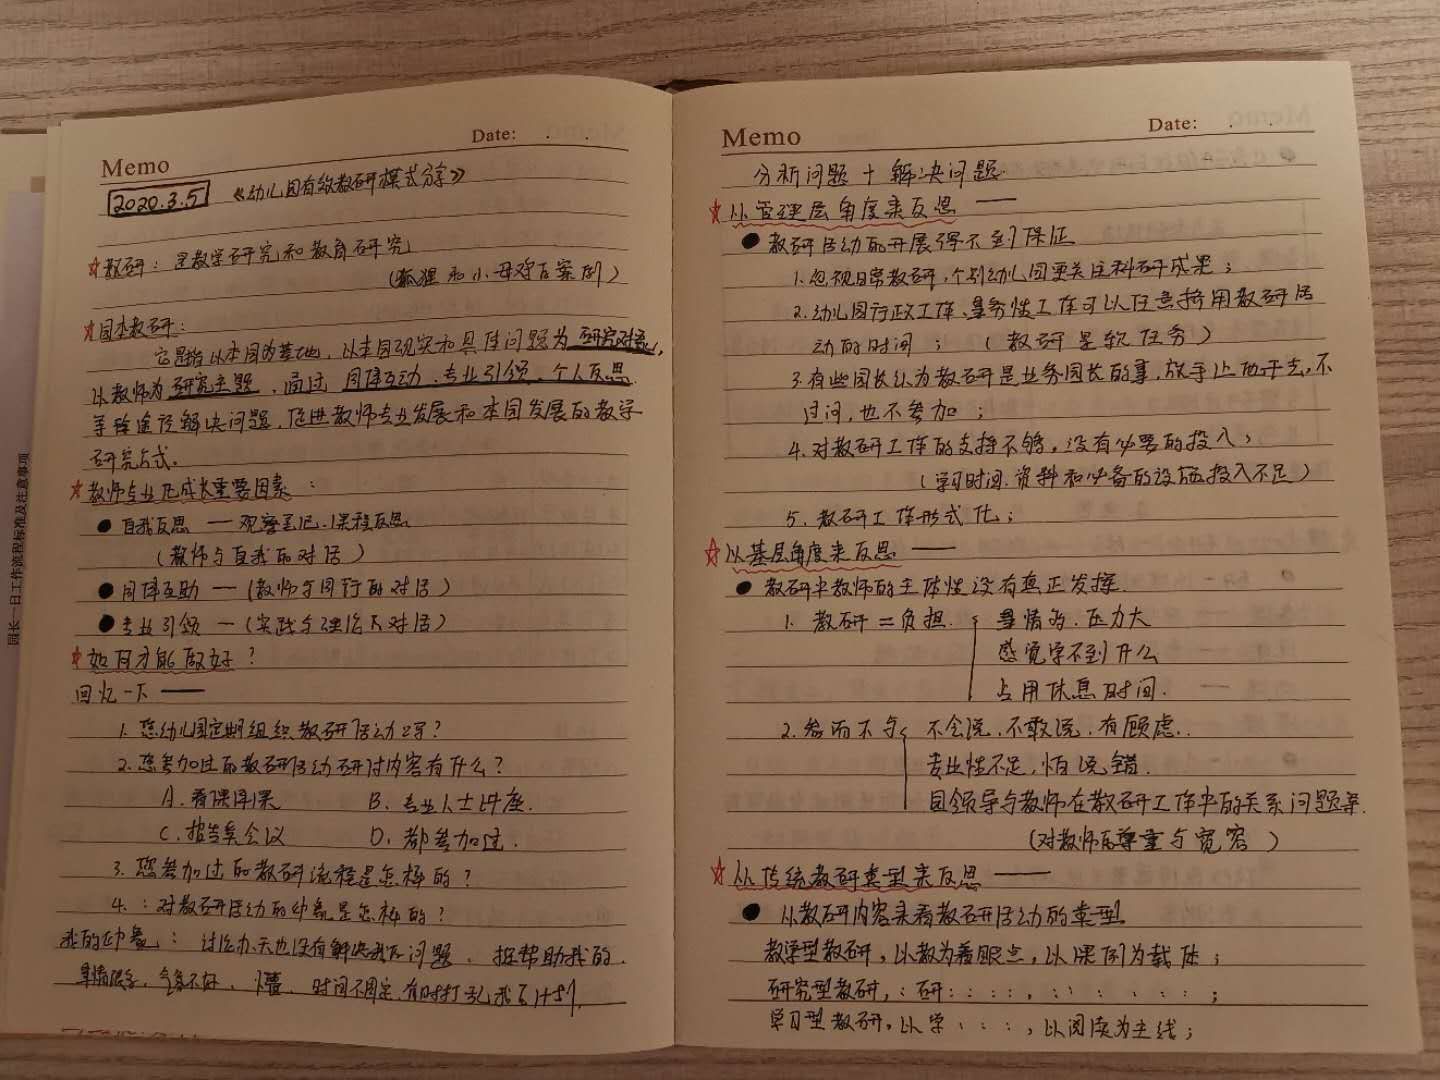 园长一日工作流程标准及注意事项
Memo
Date: . .
2020.3.5 《幼儿园有效教研模式分享》
☆教研：是教学研究和教育研究
(狐狸和小母鸡后案例)
☆园本教研：
它是指以本园为基地，以本园现实和具体问题为研究对象，
以教师为研究主题，通过同伴互动、专业引领、个人反思
等途径解决问题，促进教师专业发展和本园发展的教学
研究方式。
☆教师专业化成长重要因素：
●自我反思 — 观察笔记、课程反思
(教师与自我的对话)
●同伴互助 — (教师与同行的对话)
●专业引领 — (实践与理论对话)
☆如何才能做好？
回忆一下 ——
1. 您幼儿园定期组织教研活动吗？
2. 您参加过的教研活动研讨内容有什么？
A. 看课评课 B. 专业人士讲座.
C. 报告集会议 D. 都参加过.
3. 您参加过的教研流程是怎样的？
4. ：对教研活动的印象是怎样的？
我的印象：讨论办天也没有解决我的问题、挺帮助我的.
事情很多，气氛不好、懵、时间不固定,有时打乱我的计划.
Memo
Date: . .
分析问题 + 解决问题.
☆从管理层角度来反思 ——
●教研活动的开展得不到保证
1. 忽视日常教研，个别幼儿园更关注科研成果；
2. 幼儿园行政工作、事务性工作可以任意挤用教研活
动的时间；(教研是软任务)
3. 有些园长认为教研是业务园长的事，放手让她干去，不
过问，也不参加；
4. 对教研工作的支持不够，没有必要的投入，
(学习时间、资料和必备的设施投入不足)
5. 教研工作形式化；
☆从基层角度来反思 ——
●教研中教师的主体性没有真正发挥.
1. 教研＝负担. 事情多、压力大
感觉学不到什么
占用休息时间.
2. 参而不与 不会说、不敢说、有顾虑..
专业性不足，怕说错.
园领导与教师在教研工作中的关系问题等.
(对教师的尊重与宽容)
☆从传统教研类型来反思 ——
●从教研内容来看教研活动的类型
教学型教研，以教为着眼点，以课例为载体；
研究型教研，：研：：：：，：：：：：：：；
学习型教研，以学：：：，以阅读为主线；